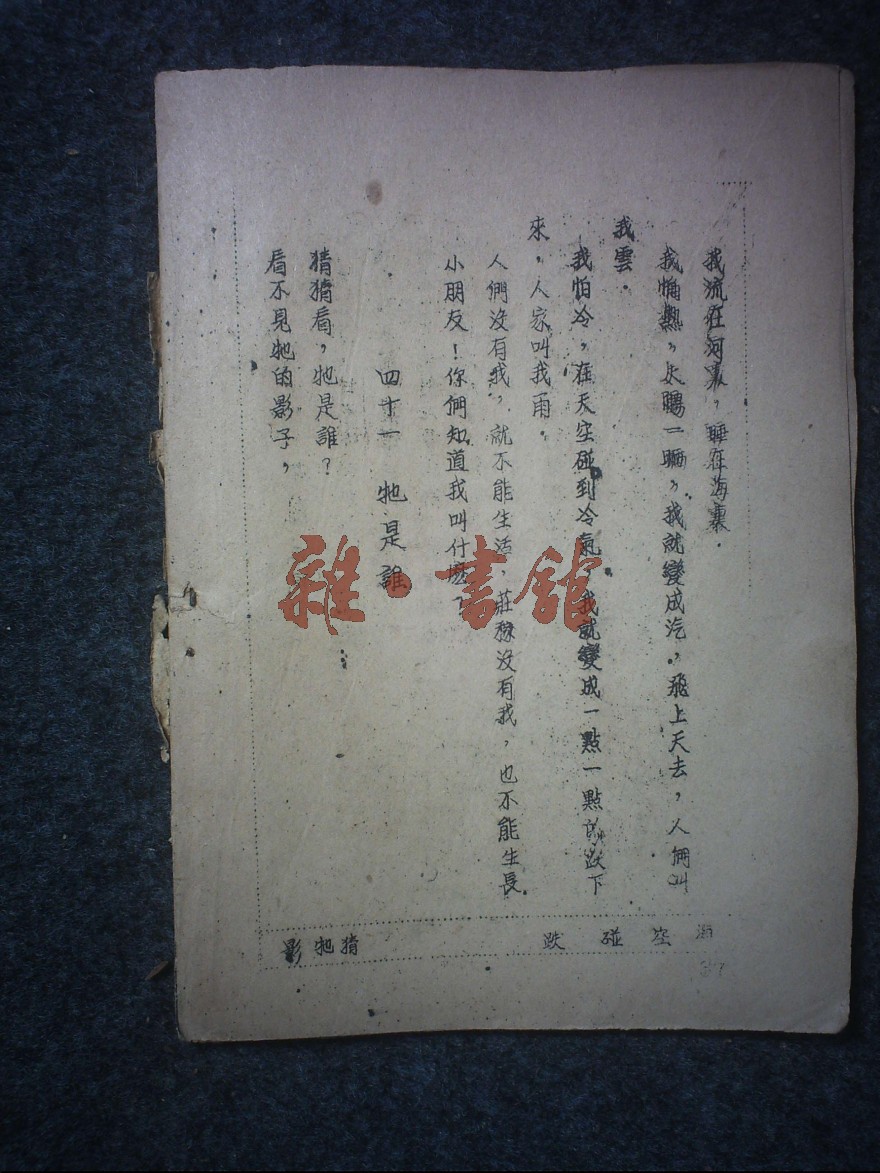 我流在河裏，睡在海裏．
我怕熱，太陽一晒，我就變成汽，飛上天去，人們叫
我雲．
我怕冷，在天空碰到冷氣，我就變成一點一點跌下
來，人家叫我雨．
人們沒有我，就不能生活，莊稼沒有我，也不能生長．
小朋友！你們知道我叫什麽？
四十一 牠是誰
猜猜看，牠是誰？
看不見牠的影子，
海 空 碰 跌
猜 牠 影
37
雜·書舘